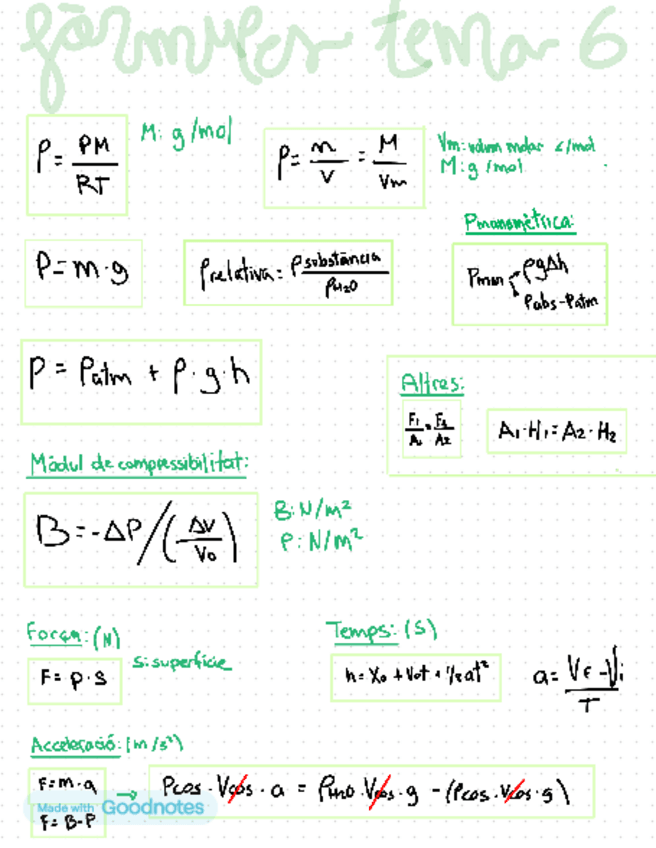 fórmules tema 6
ρ = PM/RT
M: g/mol
ρ = m/V = M/Vm
Vm: volum molar L/mol
M: g/mol
Pmanomètrica:
P = m·g
ρrelativa = ρsubstància/ρH2O
Pman
ρgΔh
Pabs-Patm
P = Patm + ρ·g·h
Altres:
F1/A1 = F2/A2
A1·H1 = A2·H2
Mòdul de compressibilitat:
B = -ΔP/(ΔV/V0)
B: N/m²
P: N/m²
Força: (N)
F = p·S
S: superfície
Temps: (S)
h = X0 + V0t + 1/2 at²
a = Vf - Vi/T
Acceleració: (m/s²)
F = m·a
F = B-P
→ ρcos·Vcos·a = ρH2O·Vcos·g - (ρcos·Vcos·g)
Made with Goodnotes